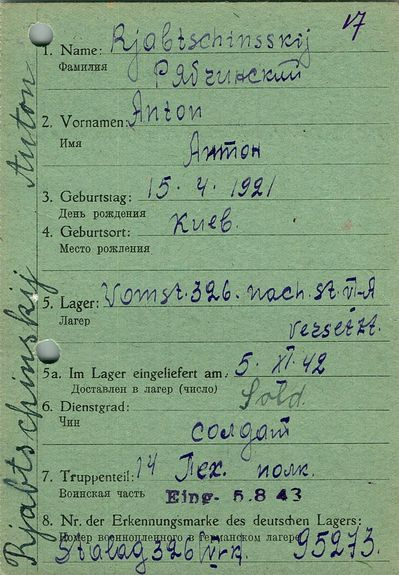 17
1. Name: Rjabtschinsskij
Фамилия Рябчинский
2. Vornamen: Anton
Имя Антон
3. Geburtstag: 15. 4. 1921
День рождения
4. Geburtsort: Киев.
Место рождения
5. Lager: Vom St. 326. nach. St. VI-A
Лагер versetzt.
5a. Im Lager eingeliefert am: 5. XI. 42
Доставлен в лагер (число)
6. Dienstgrad: Sold.
Чин солдат
7. Truppenteil: 14 Пех. полк.
Воинская часть Eing. 5.8.43
8. Nr. der Erkennungsmarke des deutschen Lagers:
Номер военнопленного в германском лагере
Stalag 326 95273.
Rjabtschinskij Anton